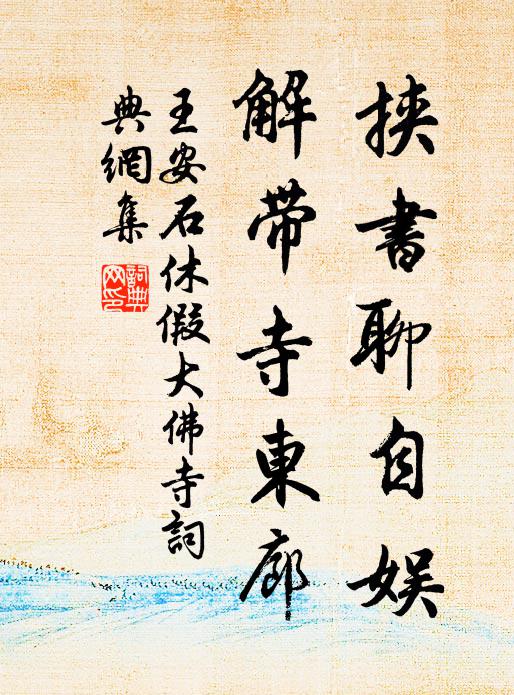 挾書聊自娱
解帶寺東廊
王安石休假大佛寺詞
典網集
詞典网印